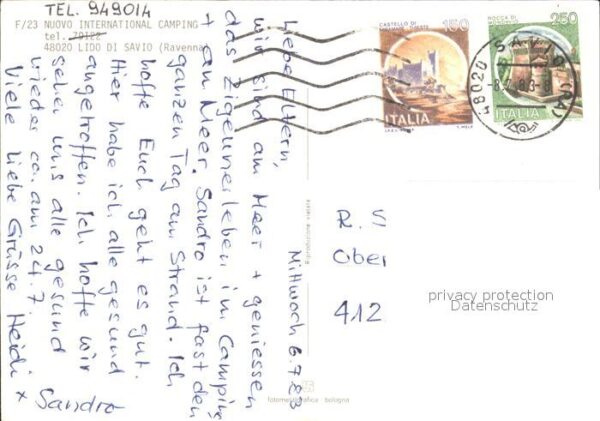 TEL. 949014
F/23 NUOVO INTERNATIONAL CAMPING
tel. 79122
48020 LIDO DI SAVIO (Ravenna)
Mittwoch 6.7.83
Liebe Eltern,
wir sind am Meer + geniessen
das Zigeunerleben im Camping
+ am Meer. Sandro ist fast den
ganzen Tag am Strand. Ich
hoffe Euch geht es gut.
Hier habe ich alle gesund
angetroffen. Ich hoffe wir
sehen uns alle gesund
wieder ca. am 24.7.
Viele liebe Grüsse Heidi +
Sandro
CASTELLO DI
150
ITALIA
ROCCA DI
250
ITALIA
48020 SAVIO (RA)
R. S
Ober
412
privacy protection
Datenschutz
fotometalgrafica bologna